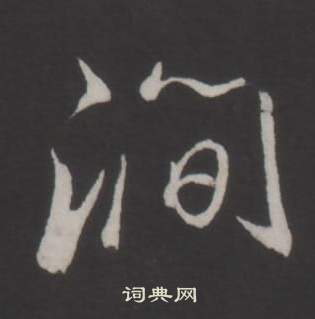 涧
词典网